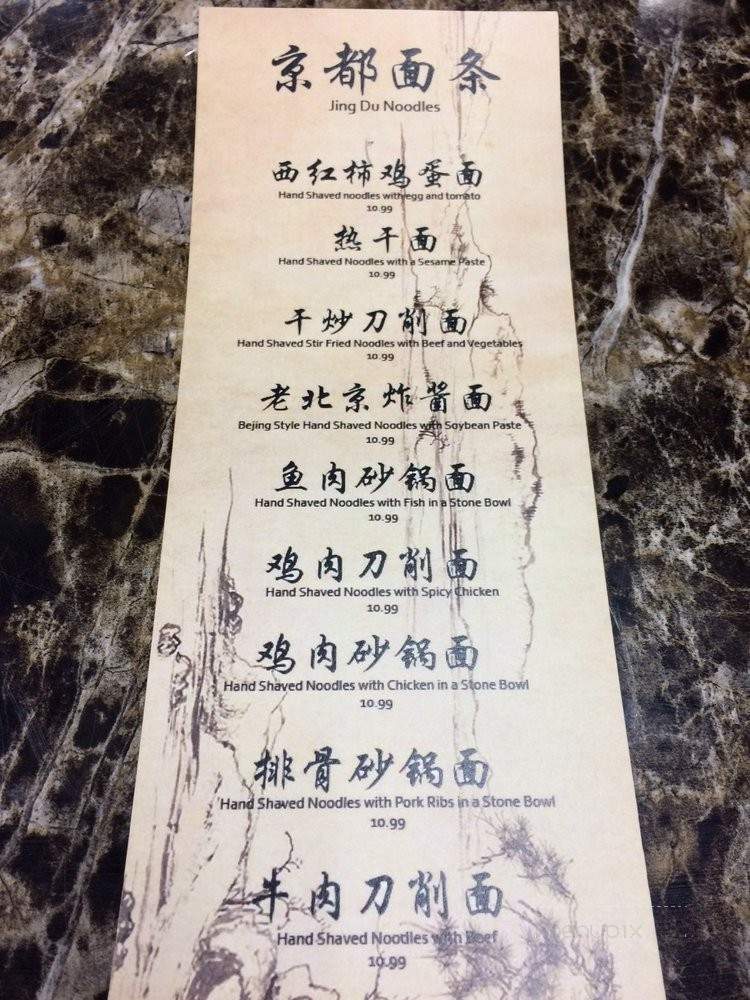 京都面条
Jing Du Noodles
西红柿鸡蛋面
Hand Shaved noodles with egg and tomato
10.99
热干面
Hand Shaved Noodles with a Sesame Paste
10.99
干炒刀削面
Hand Shaved Stir Fried Noodles with Beef and Vegetables
10.99
老北京炸酱面
Bejing Style Hand Shaved Noodles with Soybean Paste
10.99
鱼肉砂锅面
Hand Shaved Noodles with Fish in a Stone Bowl
10.99
鸡肉刀削面
Hand Shaved Noodles with Spicy Chicken
10.99
鸡肉砂锅面
Hand Shaved Noodles with Chicken in a Stone Bowl
10.99
排骨砂锅面
Hand Shaved Noodles with Pork Ribs in a Stone Bowl
10.99
牛肉刀削面
Hand Shaved Noodles with Beef
10.99